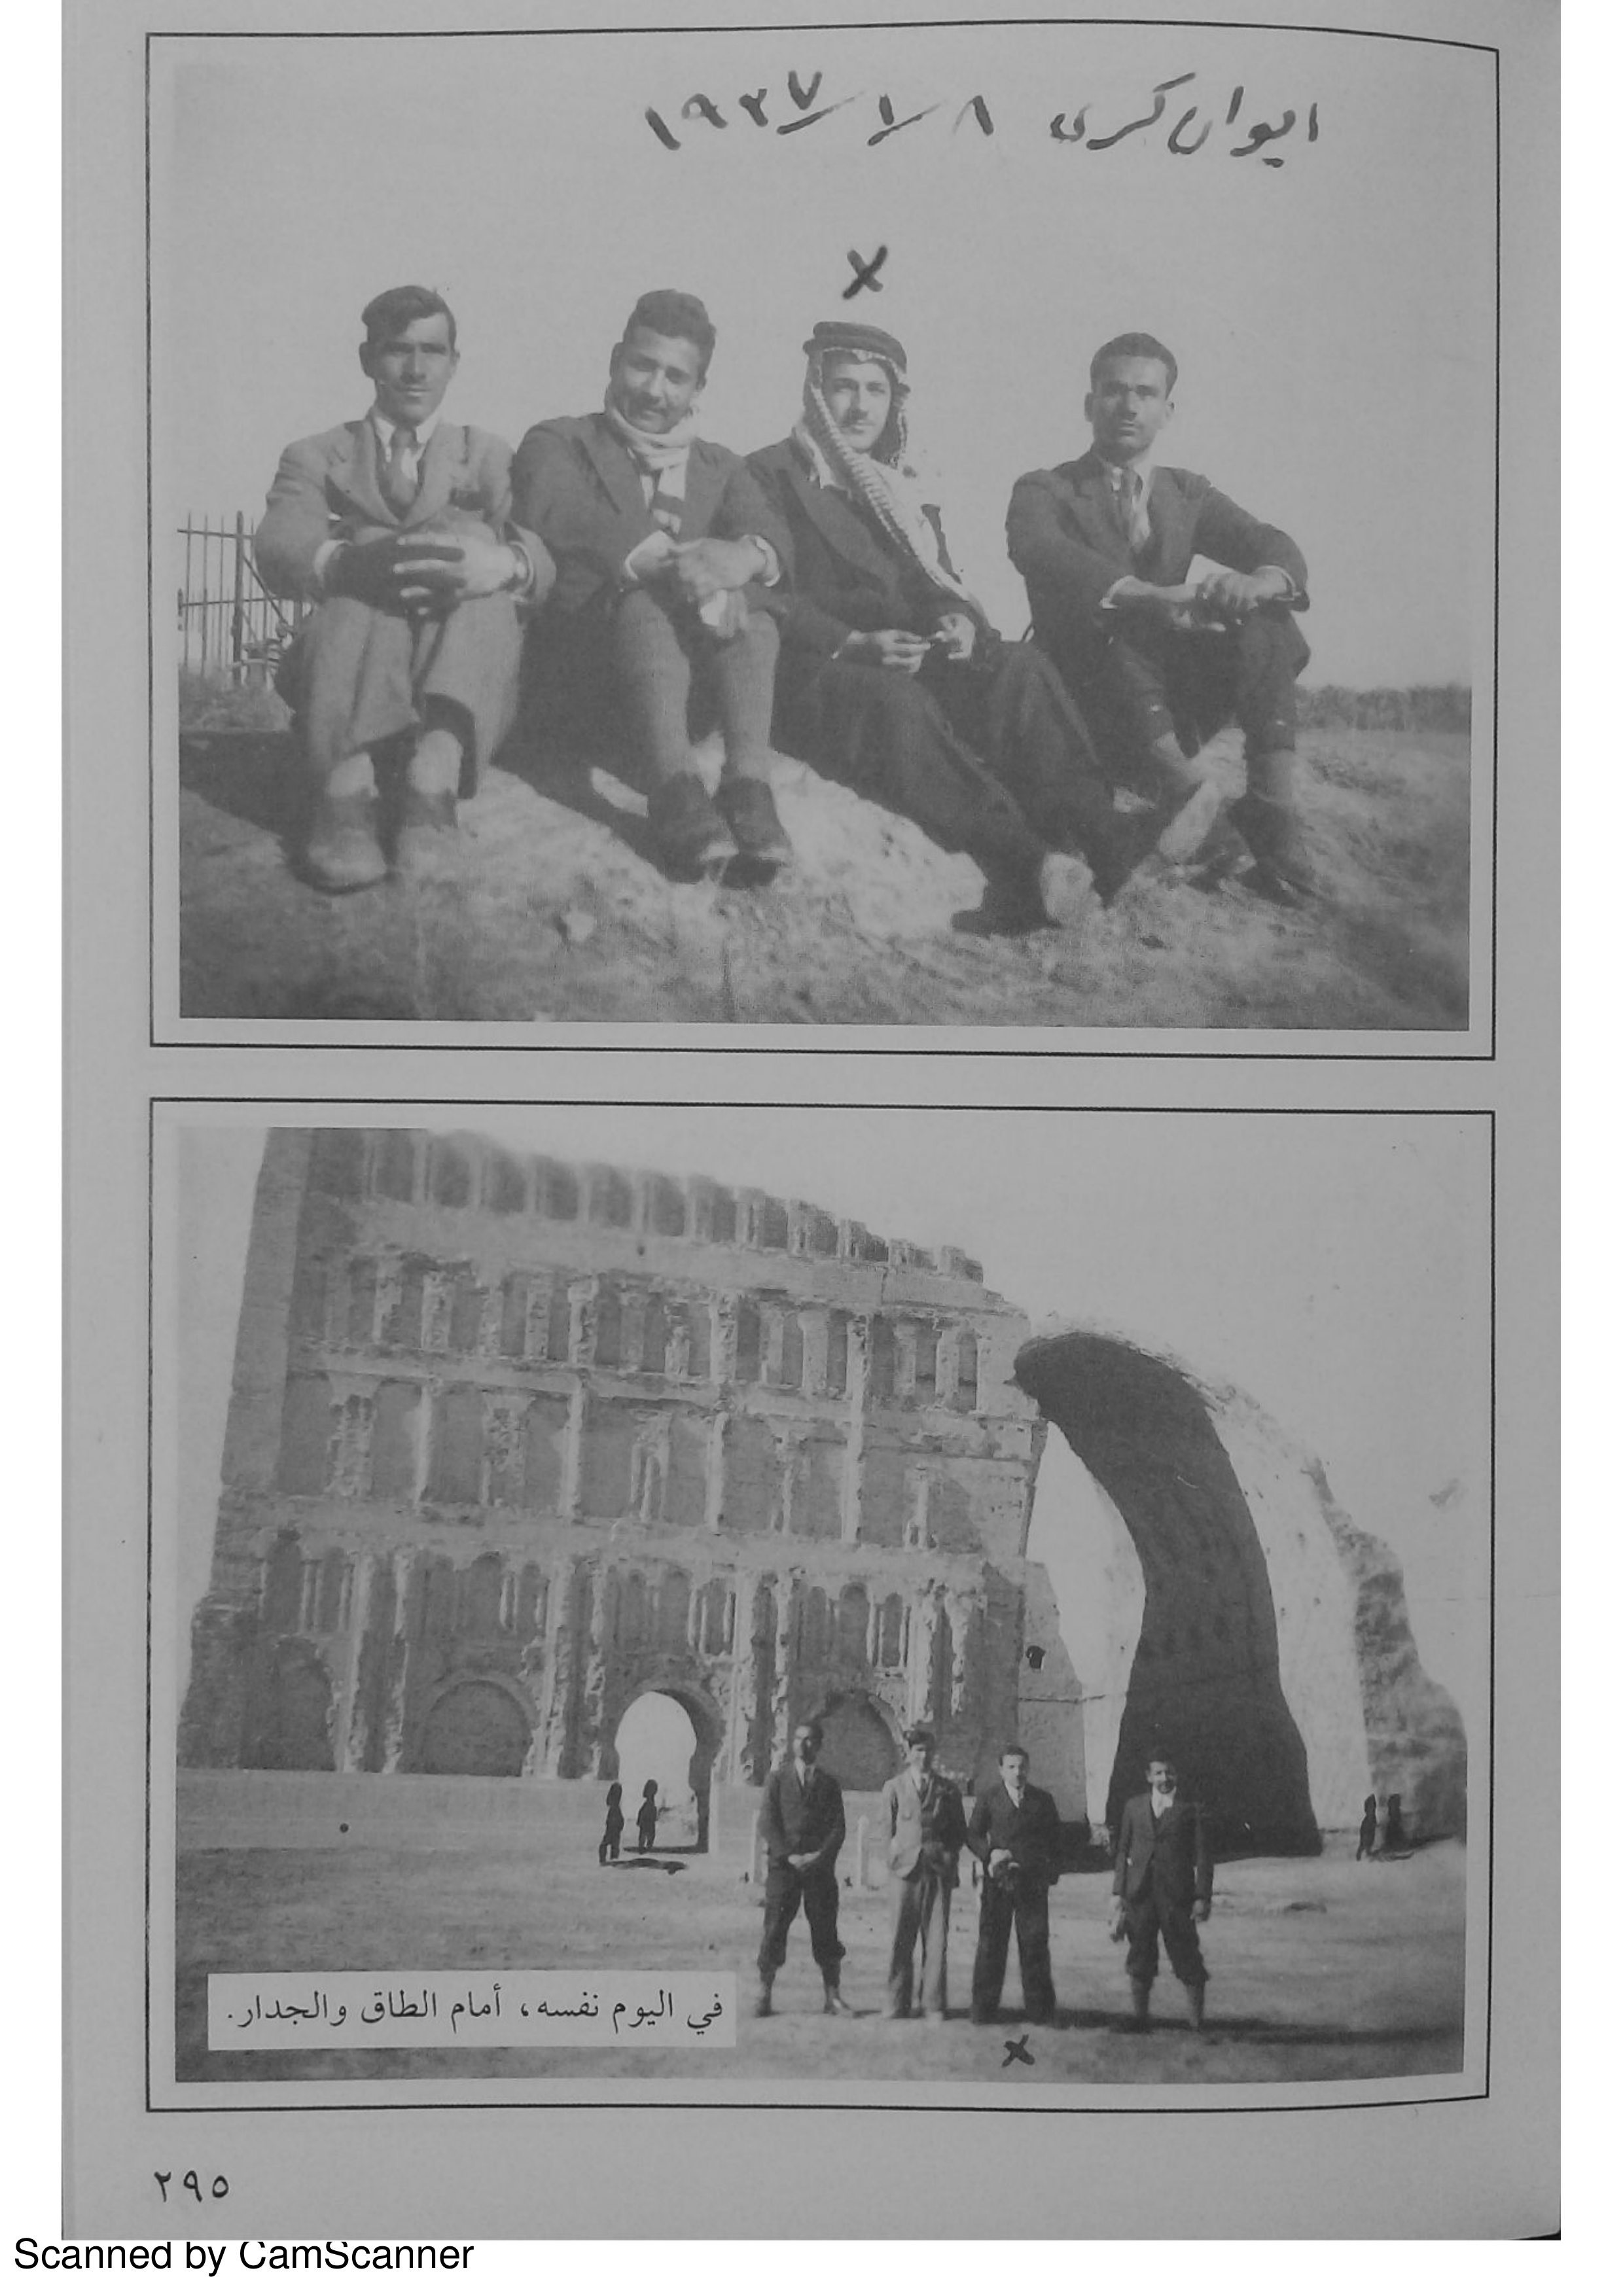 ايوان كسرى ٨/١/١٩٣٧
X
في اليوم نفسه، أمام الطاق والجدار.
X
٢٩٥
Scanned by CamScanner